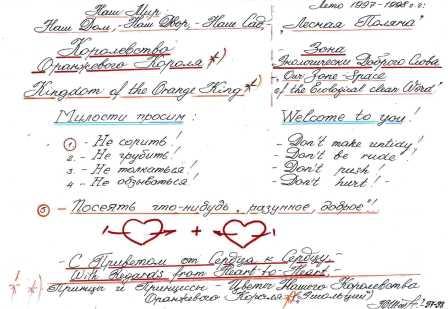 Наш Мир
Наш Дом, - Наш Двор, - Наш Сад, -
Королевство
Оранжевого Короля *)
Kingdom of the Orange King *)
Лето 1997-1998 г.г.
"Лесная Поляна"
Зона
Экологически Доброго Слова
"Our Zone-Space
of the Ecological clean Word"
Милости просим:
Welcome to you!
1 - Не сорить!
- Don't make untidy!
2 - Не грубить!
- Don't be rude!
3 - Не толкаться!
- Don't push!
4 - Не обзываться!
- Don't hurt! -
5 - Посеять что-нибудь "разумное, доброе"!
+
- С Приветом от Сердца к Сердцу, -
With Regards from Heart-to-Heart. -
*) Принцы и Принцессы - Цветы Нашего Королевства
Оранжевого Короля